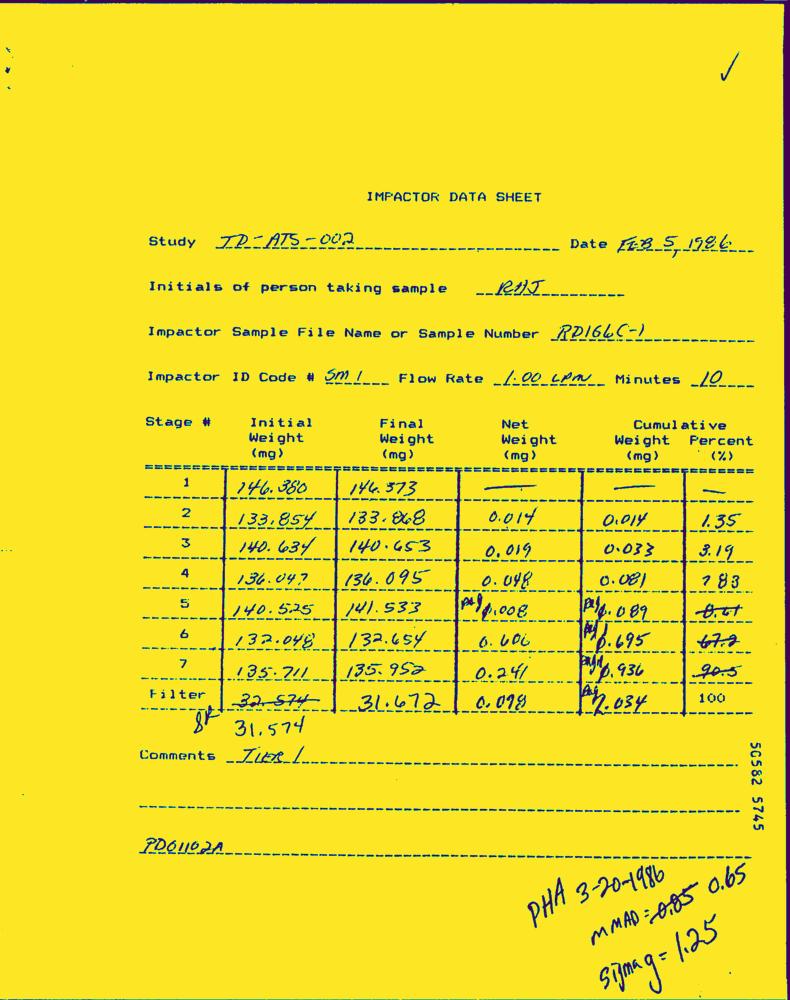 ✓
IMPACTOR DATA SHEET
Study TD-ATS-002 Date FEB 5, 1986
Initials of person taking sample RHJ
Impactor Sample File Name or Sample Number RD166C-1
Impactor ID Code # SM 1 Flow Rate 1.00 LPM Minutes 10
Stage # Initial Final Net Cumulative
Weight Weight Weight Weight Percent
(mg) (mg) (mg) (mg) (%)
1 146.380 146.373 — — —
2 133.854 133.868 0.014 0.014 1.35
3 140.634 140.653 0.019 0.033 3.19
4 136.047 136.095 0.048 0.081 7.83
5 140.525 141.533 1.008 1.089 8.61
6 132.048 132.654 0.606 1.695 67.2
7 135.711 135.952 0.241 1.936 90.5
Filter 32.574 31.672 0.098 2.034 100
31.574
Comments TIER 1
PD01102A
PHA 3-20-1986
MMAD = 0.85 0.65
sigma g = 1.25
50582 5745